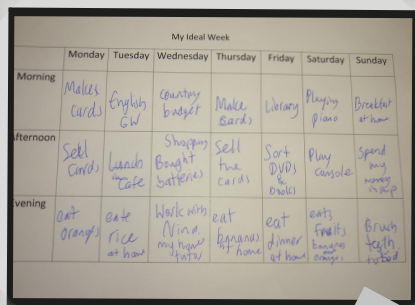 My Ideal Week
Monday Tuesday Wednesday Thursday Friday Saturday Sunday
Morning
Makes
cards
English
GW
country
budget
Make
cards
Library
Playing
piano
Breakfast
at home
fternoon
Sell
cards
Lunch
Cafe
Shopping
Bought
batteries
Sell
the
cards
Sort
DVDs
&
books
Play
console
Spend
my
money
in
vening
eat
oranges
eate
rice
at home
Work with
Nina
my
tutor
eat
bananas
at home
eat
dinner
at home
eats
fruits
bananas
oranges
Brush
teeth
to bed